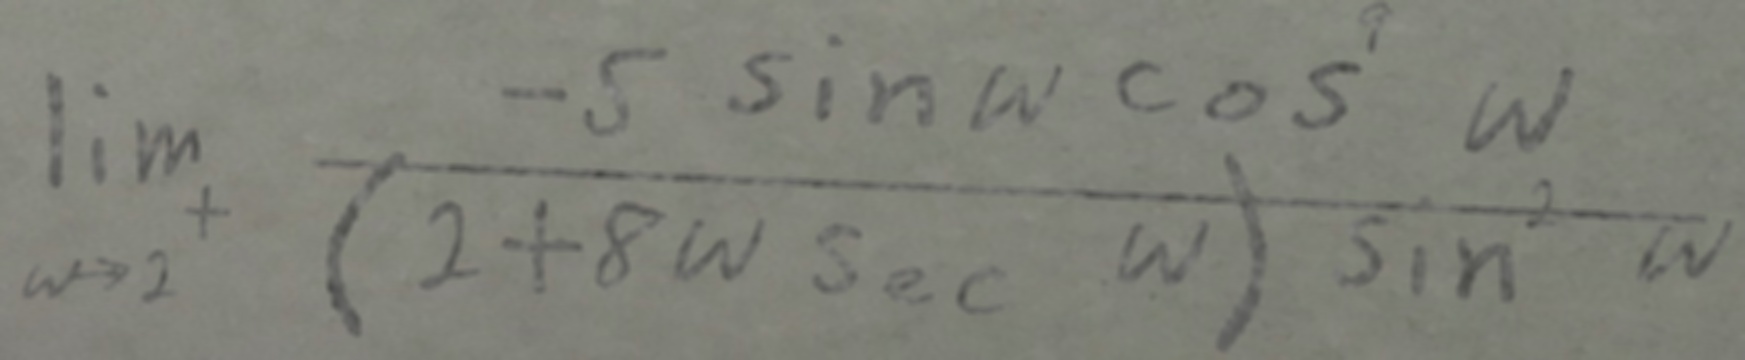 \lim_{w \to 2^+} \frac{-5 \sin w \cos^9 w}{(2+8w \sec w) \sin^2 w}